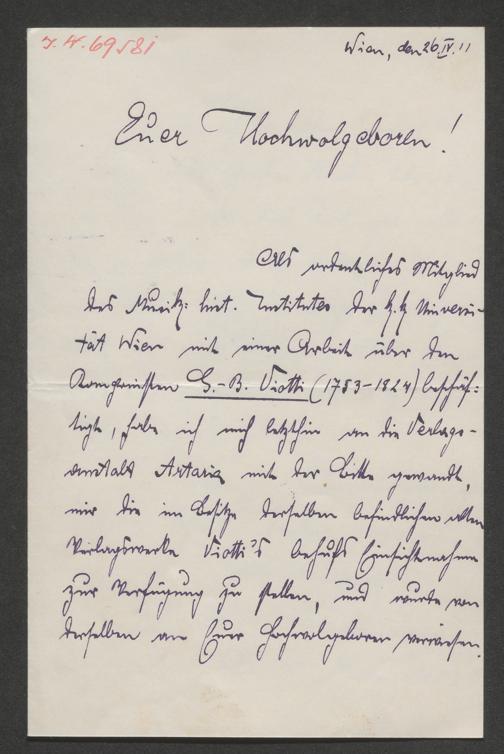 J. N. 69581
Wien, den 26.IV.11
Euer Hochwolgeboren!
Als ordentliches Mitglied
des Musik: hist. Institutes der k. k. Univers-
tät Wien mit einer Arbeit über den
Komponisten G.-B. Viotti (1753-1824) beschäf-
tigt, habe ich mich letzthin an die Verlags-
anstalt Artaria mit der Bitte gewandt,
mir die im Besitze derselben befindlichen alten
Verlagswerke Viotti's behufs Einsichtnahme
zur Verfügung zu stellen, und wurde von
derselben an Euer Hochwolgeboren verwiesen.